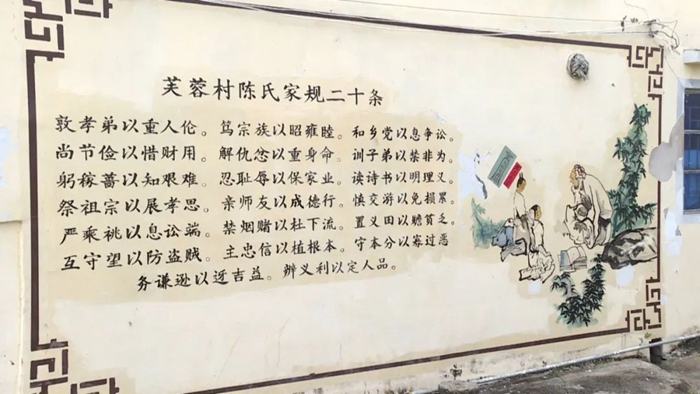 芙蓉村陈氏家规二十条
敦孝弟以重人伦。笃宗族以昭雍睦。和乡党以息争讼。
尚节俭以惜财用。解仇忿以重身命。训子弟以禁非为。
躬稼蔷以知艰难。忍耻辱以保家业。读诗书以明理义
祭祖宗以展孝思。亲师友以成德行。慎交游以免损累。
严乘祧以息讼端。禁烟赌以杜下流。置义田以赡贫乏
互守望以防盗贼。主忠信以植根本。守本分以寡过恶
务谦逊以迓吉益。辨义利以定人品。